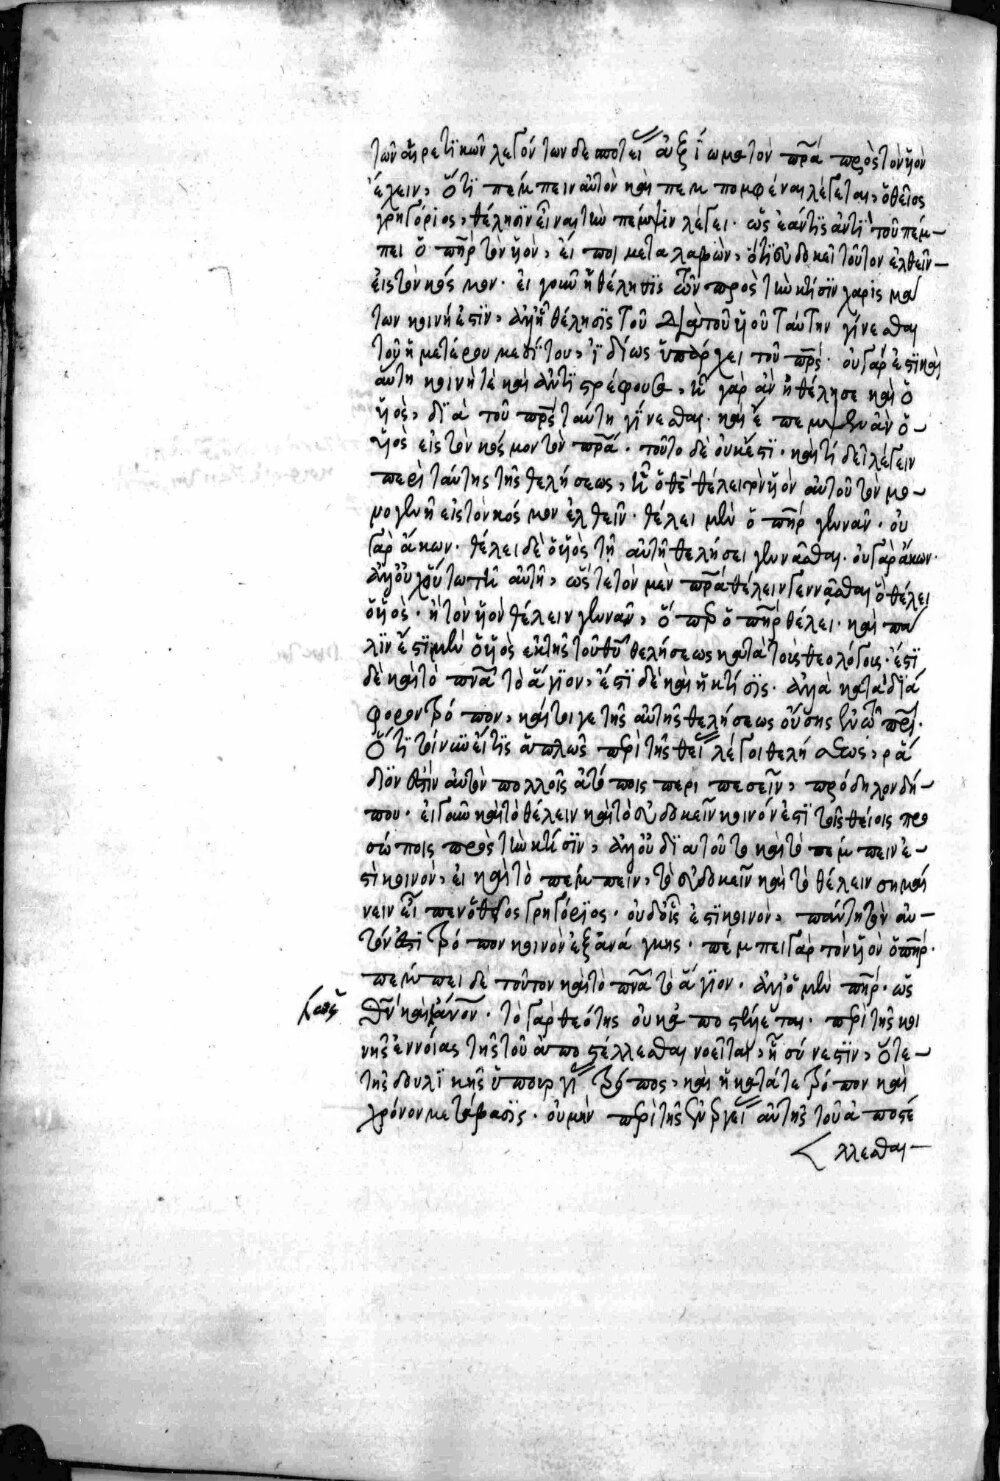 τῶν αἱρετικῶν λεγόντων δεσποτεί ἀξίωμα τὸν πρα πρὸς τὸν υἱὸν
ἔχειν, ὅτι πέμπειν αὐτὸν καὶ πεμπομφέναι λέγεται, ὁ θεῖος
γρηγόριος, θέλησιν εἶναι τὴν πέμψιν λέγει. ὡς ἐάν τις ἀντὶ τοῦ πέμ-
πει ὁ πηρ τὸν υἱὸν, εἴποι μεταλαβὼν, ὅτι εὐδοκεῖ τοῦτον ἐλθεῖν
εἰς τὸν κόσμον. εἰ γοῦν ἡ θέλησις τῶν πρὸς τὴν κτίσιν χαρισμά
των κοινή ἐστιν, ἀλλ' ἡ θέλησις τοῦ διὰ τοῦ υἱοῦ ταύτην γίνεσθαι
τοῦ ἡμετέρου μεσίτου, ἰδίως ὑπάρχει τοῦ πρς. οὐ γάρ ἐστι καὶ
αὕτη κοινὴ τὲ καὶ ἀντιστρέφουσα, ἢ γὰρ ἂν ἠθέλησε καὶ ὁ
υἱὸς, διὰ τοῦ πρς ταύτη γίνεσθαι. καὶ ἔπεμψεν ἂν ὁ
υἱὸς εἰς τὸν κόσμον τὸν πρα. τοῦτο δὲ οὐκ ἔστι. καὶ τί δεῖ λέγειν
περὶ ταύτης τῆς θελήσεως, ἢ ὁ θς θέλει τὸν υἱὸν αὐτοῦ τὸν μο-
νογενῆ εἰς τὸν κόσμον ἐλθεῖν. θέλει μὲν ὁ πηρ γεννᾶν. οὐ
γὰρ ἄκων. θέλει δὲ ὁ υἱὸς τῇ αὐτῇ θελήσει γεννᾶσθαι. οὐ γὰρ ἄκων.
ἀλλ' οὐχ οὕτω τῇ αὐτῇ, ὥστε τὸν μὲν πρα θέλειν γεννᾶσθαι ὃ θέλει
ὁ υἱός. ἢ τὸν υἱὸν θέλειν γεννᾶν, ὅπερ ὁ πηρ θέλει. καὶ πά
λιν ἔστι μὲν ὁ υἱὸς ἐκ τῆς τοῦ θυ θελήσεως κατὰ τοὺς θεολόγους. ἔστι
δὲ καὶ τὸ πνα τὸ ἅγιον, ἔστι δὲ καὶ ἡ κτίσις. ἀλλὰ κατὰ διά
φορον τρόπον, καίτοι γε τῆς αὐτῆς θελήσεως οὔσης ἐν τῷ πρι.
Ὅτι τοίνυν εἴ τις ἁπλῶς περὶ τῆς θεί λέγοι θελήσεως, ῥᾴ
διον ἐστὶν αὐτὸν πολλοῖς ἀτόποις περιπεσεῖν, πρόδηλον δή-
που. εἰ γοῦν καὶ τὸ θέλειν καὶ τὸ εὐδοκεῖν κοινόν ἐστι τοῖς θείοις προ
σώποις πρὸς τὴν κτίσιν, ἀλλ' οὐ διὰ τοῦτο καὶ τὸ πέμπειν ἐ-
στὶ κοινὸν, εἰ καὶ τὸ πέμπειν, τὸ εὐδοκεῖν καὶ τὸ θέλειν σημαί
νειν εἶπεν ὁ θεῖος γρηγόριος. οὐδ' εἴς ἐστι κοινὸν, πάντη τὸν αὐ-
τόν ἐστι τρόπον κοινὸν ἐξ ἀνάγκης. πέμπει γὰρ τὸν υἱὸν ὁ πηρ.
πέμπει δὲ τοῦτον καὶ τὸ πνα τὸ ἅγιον. ἀλλ' ὁ μὲν πηρ. ὡς
θν καὶ ἄνον. τὸ γὰρ θεότης οὐκ ἀποστέλλεται. περὶ τῆς κοι
νῆς ἐννοίας τῆς τοῦ ἀποστέλλεσθαι νοεῖται, ἥ σύνεστιν, ὅτε-
τῆς δουλικῆς ὑπουργί τρόπος, καὶ ἡ κατά τε τρόπον καὶ
χρόνον μετάβασις. οὐ μὴν περὶ τῆς ἐνεργεί αὐτῆς τοῦ ἀποστέ
λλεσθαι